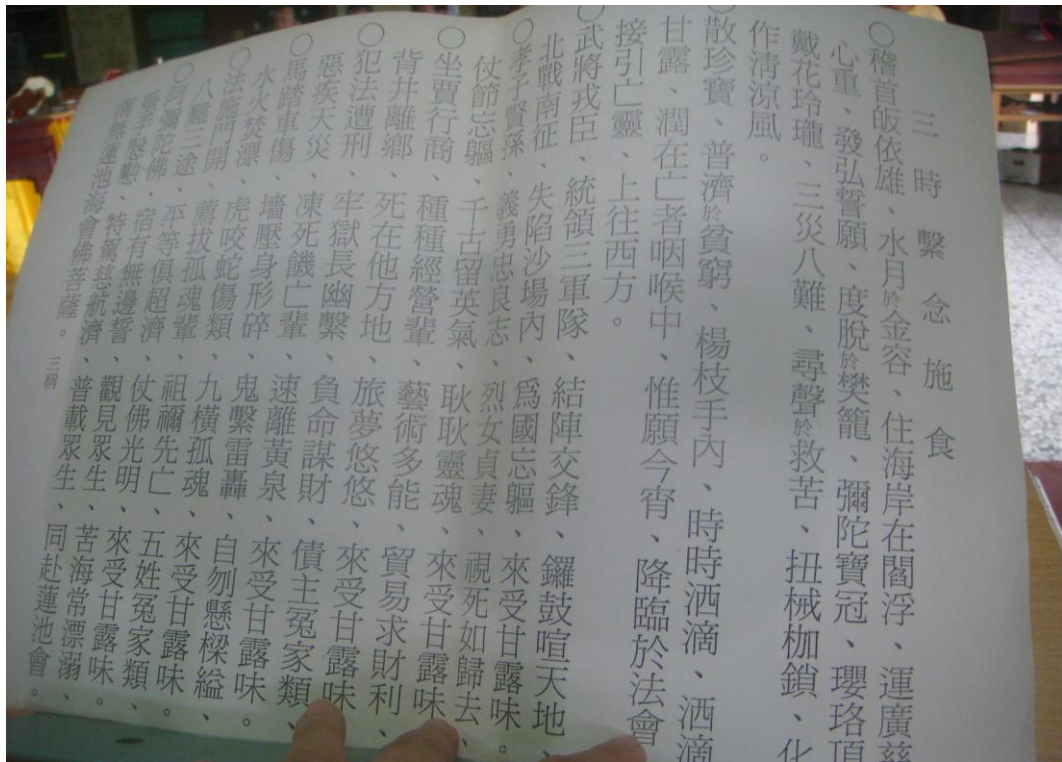 三時繫念施食
○稽首皈依雄、水月於金容、住海岸在閻浮、運廣慈
心重、發弘誓願、度脫於樊籠、彌陀寶冠、瓔珞頂
戴花玲瓏、三災八難、尋聲於救苦、扭械枷鎖、化
作清涼風。
○散珍寶、普濟於貧窮、楊枝手內、時時洒滴、洒滴
甘露、潤在亡者咽喉中、惟願今宵、降臨於法會
接引亡靈、上往西方。
○武將戎臣、統領三軍隊、結陣交鋒、鑼鼓喧天地、
北戰南征、失陷沙場內、爲國忘軀、來受甘露味。
○孝子賢孫、義勇忠良志、烈女貞妻、視死如歸去、
仗節忘軀、千古留英氣、耿耿靈魂、來受甘露味、
○坐賈行商、種種經營輩、藝術多能、貿易求財利、
背井離鄉、死在他方地、旅夢悠悠、來受甘露味
○犯法遭刑、牢獄長幽繫、負命謀財、債主冤家類、
惡疾天災、凍死饑亡輩、速離黃泉、來受甘露味。
○馬踏車傷、墻壓身形碎、鬼繫雷轟、自刎懸樑縊、
水火焚漂、虎咬蛇傷類、九橫孤魂、來受甘露味。
○法施門開、薦拔孤魂輩、祖禰先亡、五姓冤家類、
八難三途、平等俱超濟、仗佛光明、來受甘露味。
○阿彌陀佛、宿有無邊誓、觀見眾生、苦海常漂溺、
垂手慇懃、特駕慈航濟、普載眾生、同赴蓮池會。
南無蓮池海會佛菩薩。三稱